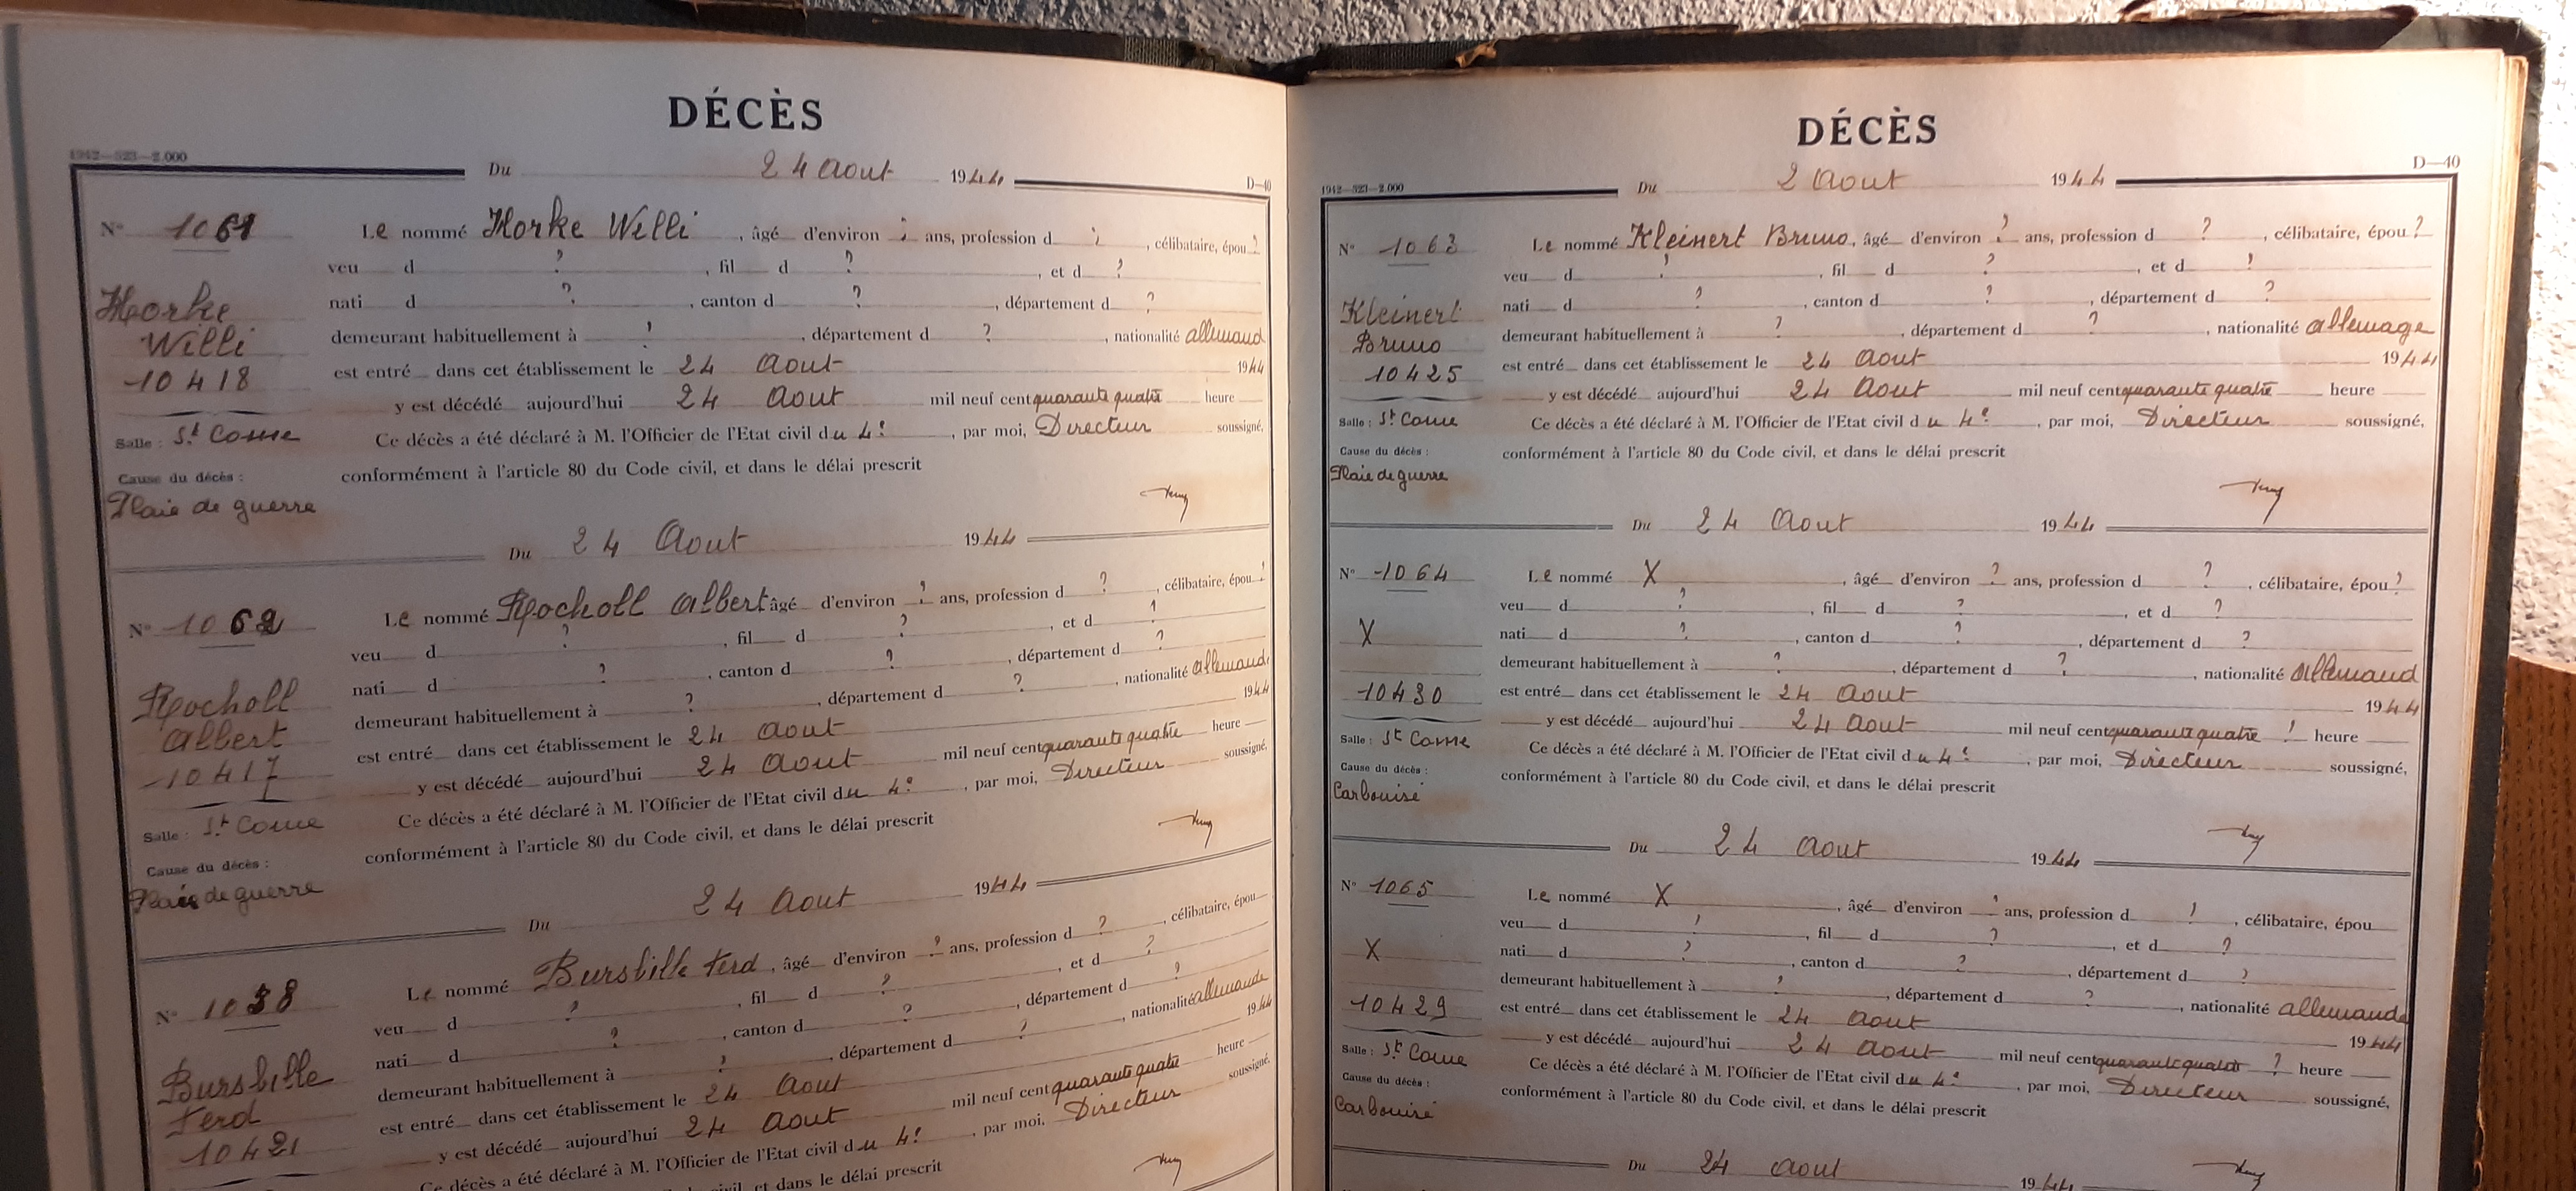 DÉCÈS
1942—523—2.000
Du 24 Aout 1944
D—40
N° 1061
Le nommé Horke Willi, âgé d'environ ? ans, profession d ?, célibataire, épou ?
veu d ?, fil d ?, et d ?
nati d ?, canton d ?, département d ?
Horke
Willi
10418
demeurant habituellement à ?, département d ?, nationalité allemand
est entré dans cet établissement le 24 Aout 1944
y est décédé aujourd'hui 24 Aout mil neuf cent quarante quatre heure
Salle : St Come
Ce décès a été déclaré à M. l'Officier de l'Etat civil du 4e, par moi, Directeur soussigné,
conformément à l'article 80 du Code civil, et dans le délai prescrit
Cause du décès :
Plaie de guerre
Du 24 Aout 1944
N° 1062
Le nommé Rocholl Albert âgé d'environ ? ans, profession d ?, célibataire, épou ?
veu d ?, fil d ?, et d ?
nati d ?, canton d ?, département d ?
Rocholl
Albert
10417
demeurant habituellement à ?, département d ?, nationalité allemande
est entré dans cet établissement le 24 Aout 1944
y est décédé aujourd'hui 24 Aout mil neuf cent quarante quatre heure
Salle : St Come
Ce décès a été déclaré à M. l'Officier de l'Etat civil du 4e, par moi, Directeur soussigné,
conformément à l'article 80 du Code civil, et dans le délai prescrit
Cause du décès :
Plaie de guerre
Du 24 Aout 1944
N° 1038
Le nommé Bursbille Ferd, âgé d'environ ? ans, profession d ?, célibataire, épou
veu d ?, fil d ?, et d ?
nati d ?, canton d ?, département d ?
Bursbille
Ferd
10421
demeurant habituellement à ?, département d ?, nationalité allemande
est entré dans cet établissement le 24 Aout 1944
y est décédé aujourd'hui 24 Aout mil neuf cent quarante quatre heure
Ce décès a été déclaré à M. l'Officier de l'Etat civil du 4e, par moi, Directeur soussigné,
civil, et dans le délai prescrit
DÉCÈS
1942—523—2.000
Du 2 Aout 1944
D—40
N° 1063
Le nommé Kleinert Bruno, âgé d'environ ? ans, profession d ?, célibataire, épou ?
veu d ?, fil d ?, et d ?
nati d ?, canton d ?, département d ?
Kleinert
Bruno
10425
demeurant habituellement à ?, département d ?, nationalité allemage
est entré dans cet établissement le 24 Aout 1944
y est décédé aujourd'hui 24 Aout mil neuf cent quarante quatre heure
Salle : St Come
Ce décès a été déclaré à M. l'Officier de l'Etat civil du 4e, par moi, Directeur soussigné,
conformément à l'article 80 du Code civil, et dans le délai prescrit
Cause du décès :
Plaie de guerre
Du 24 Aout 1944
N° 1064
Le nommé X, âgé d'environ ? ans, profession d ?, célibataire, épou ?
veu d ?, fil d ?, et d ?
nati d ?, canton d ?, département d ?
X
10430
demeurant habituellement à ?, département d ?, nationalité allemand
est entré dans cet établissement le 24 Aout 1944
y est décédé aujourd'hui 24 Aout mil neuf cent quarante quatre ! heure
Salle : St Come
Ce décès a été déclaré à M. l'Officier de l'Etat civil du 4e, par moi, Directeur soussigné,
conformément à l'article 80 du Code civil, et dans le délai prescrit
Cause du décès :
Carbonisé
Du 24 Aout 1944
N° 1065
Le nommé X, âgé d'environ ? ans, profession d ?, célibataire, épou
veu d ?, fil d ?, et d ?
nati d ?, canton d ?, département d ?
X
10429
demeurant habituellement à ?, département d ?, nationalité allemande
est entré dans cet établissement le 24 Aout 1944
y est décédé aujourd'hui 24 Aout mil neuf cent quarante quatre ? heure
Salle : St Come
Ce décès a été déclaré à M. l'Officier de l'Etat civil du 4e, par moi, Directeur soussigné,
conformément à l'article 80 du Code civil, et dans le délai prescrit
Cause du décès :
Carbonisé
Du 24 Aout 1944